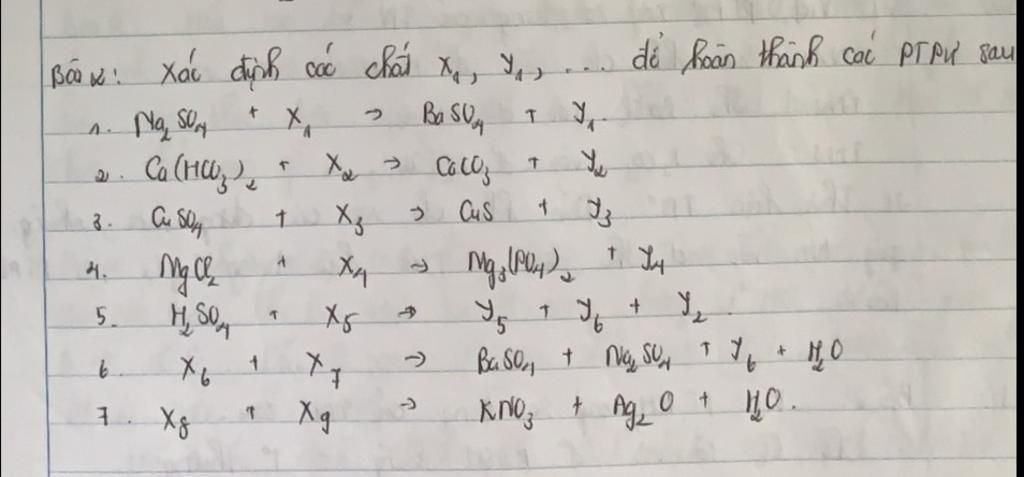 Bài 2: Xác định các chất X₁, Y₁, ... để hoàn thành các PTPƯ sau
1. Na₂SO₄ + X₁ → BaSO₄ + Y₁.
2. Ca(HCO₃)₂ + X₂ → CaCO₃ + Y₂
3. CuSO₄ + X₃ → CuS + Y₃
4. MgCl₂ + X₄ → Mg₃(PO₄)₂ + Y₄
5. H₂SO₄ + X₅ → Y₅ + Y₆ + Y₂.
6. X₆ + X₇ → BaSO₄ + Na₂SO₄ + Y₆ + H₂O
7. X₈ + X₉ → KNO₃ + Ag₂O + H₂O.